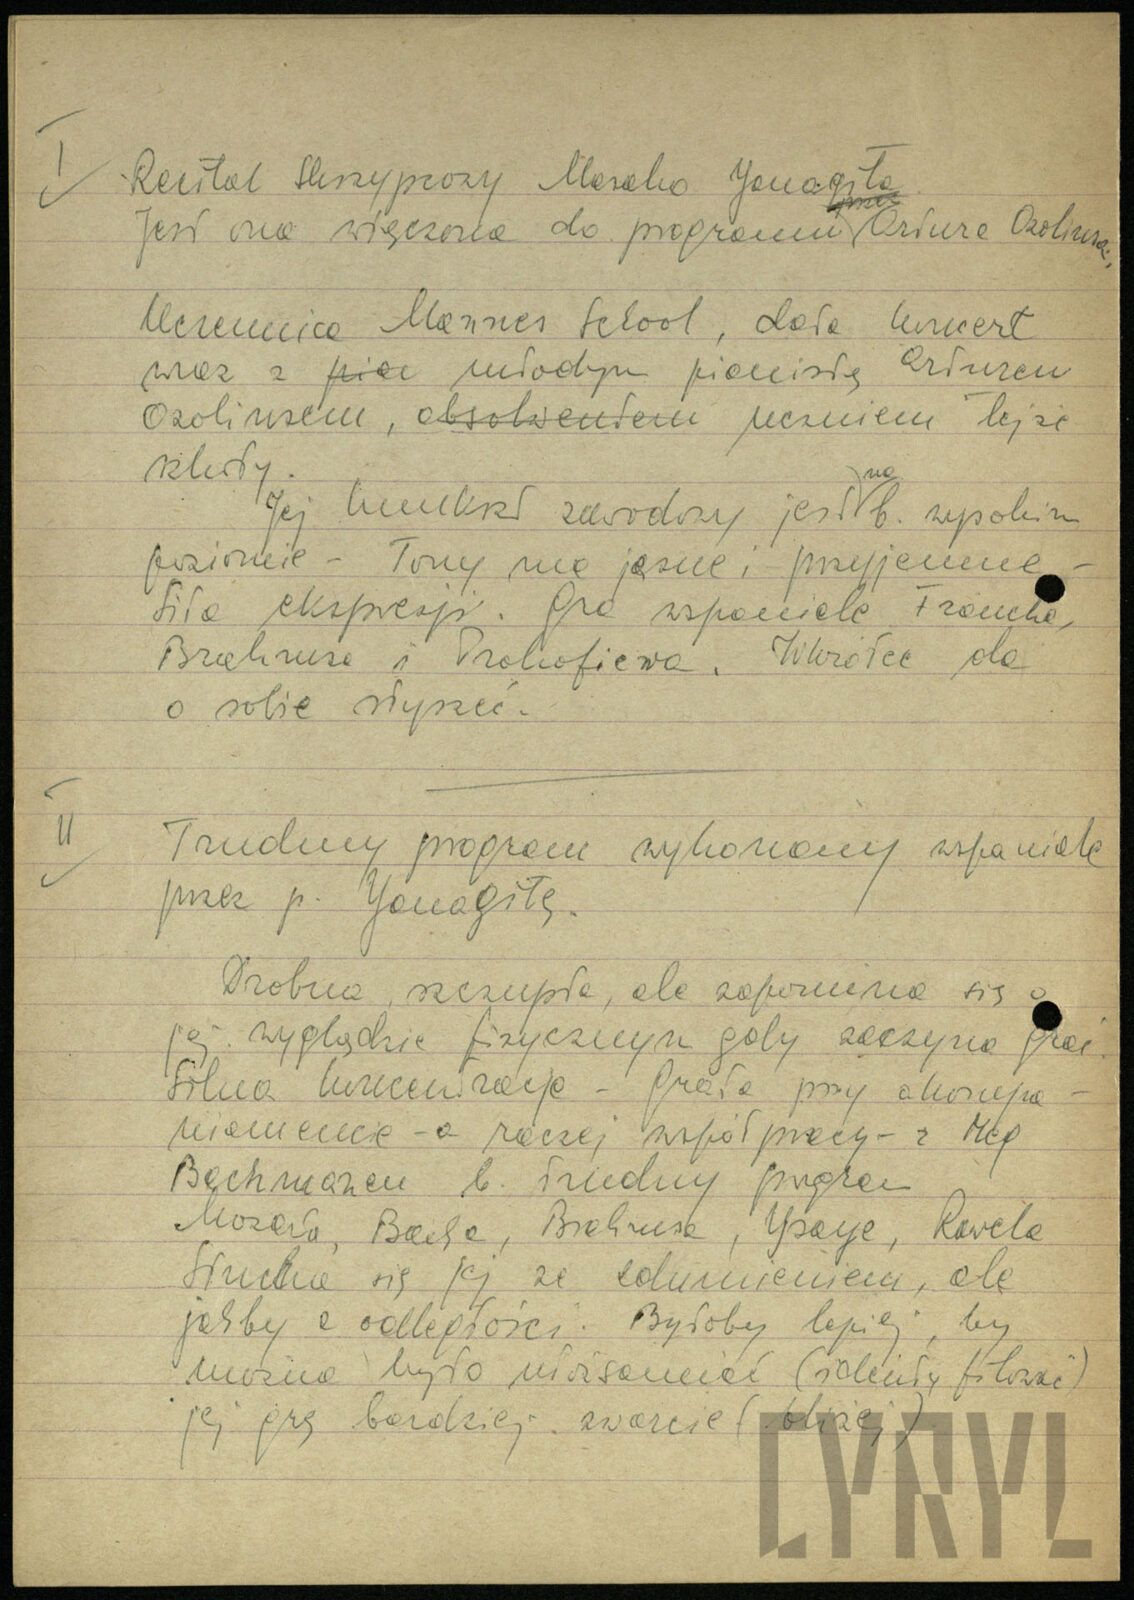 I
Recital Skrzypcowy Masako Yanagita
Jest ona włączona do programu Artura Ozolinsa,
Uczennica Mannes School, dała koncert
wraz z pian młodym pianistą Arturem
Ozolinsem, absolwentem uczniem tejże
szkoły.
Jej kunszt zawodowy jest na b. wysokim
poziomie - Tony ma jasne i przyjemne -
siła ekspresji. Gra wspaniale Francka,
Brahmsa i Prokofiewa. Wkrótce da
o sobie słyszeć.
II
Trudny program wykonany wspaniale
przez p. Yanagitę.
Drobna, szczupła, ale zapomina się o
jej wyglądzie fizycznym gdy zaczyna grać.
Silna koncentracja - Grała przy akompa-
niamencie - a raczej współpracy - z
Bachmanem b. trudny program
Mozarta, Bacha, Brahmsa, Ysaye, Ravela
Słucha się jej ze zdumieniem, ale
jakby z odległości. Byłoby lepiej, by
można było utożsamiać (identyfikować)
jej grę bardziej zwarcie (bliżej)
CYRYL